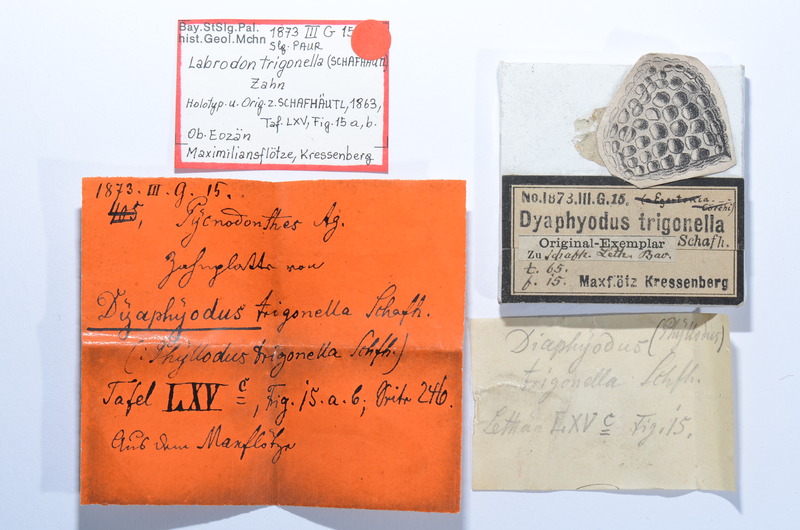 Bay.StSlg.Pal.
hist.Geol.Mchn
1873 III G 15
Slg. PAUR
Labrodon trigonella (SCHAFHÄUTL)
Zahn
Holotyp. u. Orig. z. SCHAFHÄUTL, 1863,
Taf. LXV, Fig. 15 a, b.
Ob. Eozän
Maximiliansflötze, Kressenberg
No. 1873.III.G. 15.
Dyaphyodus trigonella
Original-Exemplar Schafh.
Zu Schafh. Leth. Bav.
t. 65.
f. 15. Maxflötz Kressenberg
1873. III. G. 15.
405, Pycnodonthes Ag.
Zahnplatte von
Dÿaphÿodus trigonella Schafh.
(: Phÿllodus trigonella Schfh.)
Tafel LXV c, Fig. 15. a. b; Seite 246.
Aus dem Maxflötze
Diaphÿodus (Phÿllodus)
trigonella Schfh.
Lethäa LXV c Fig. 15.